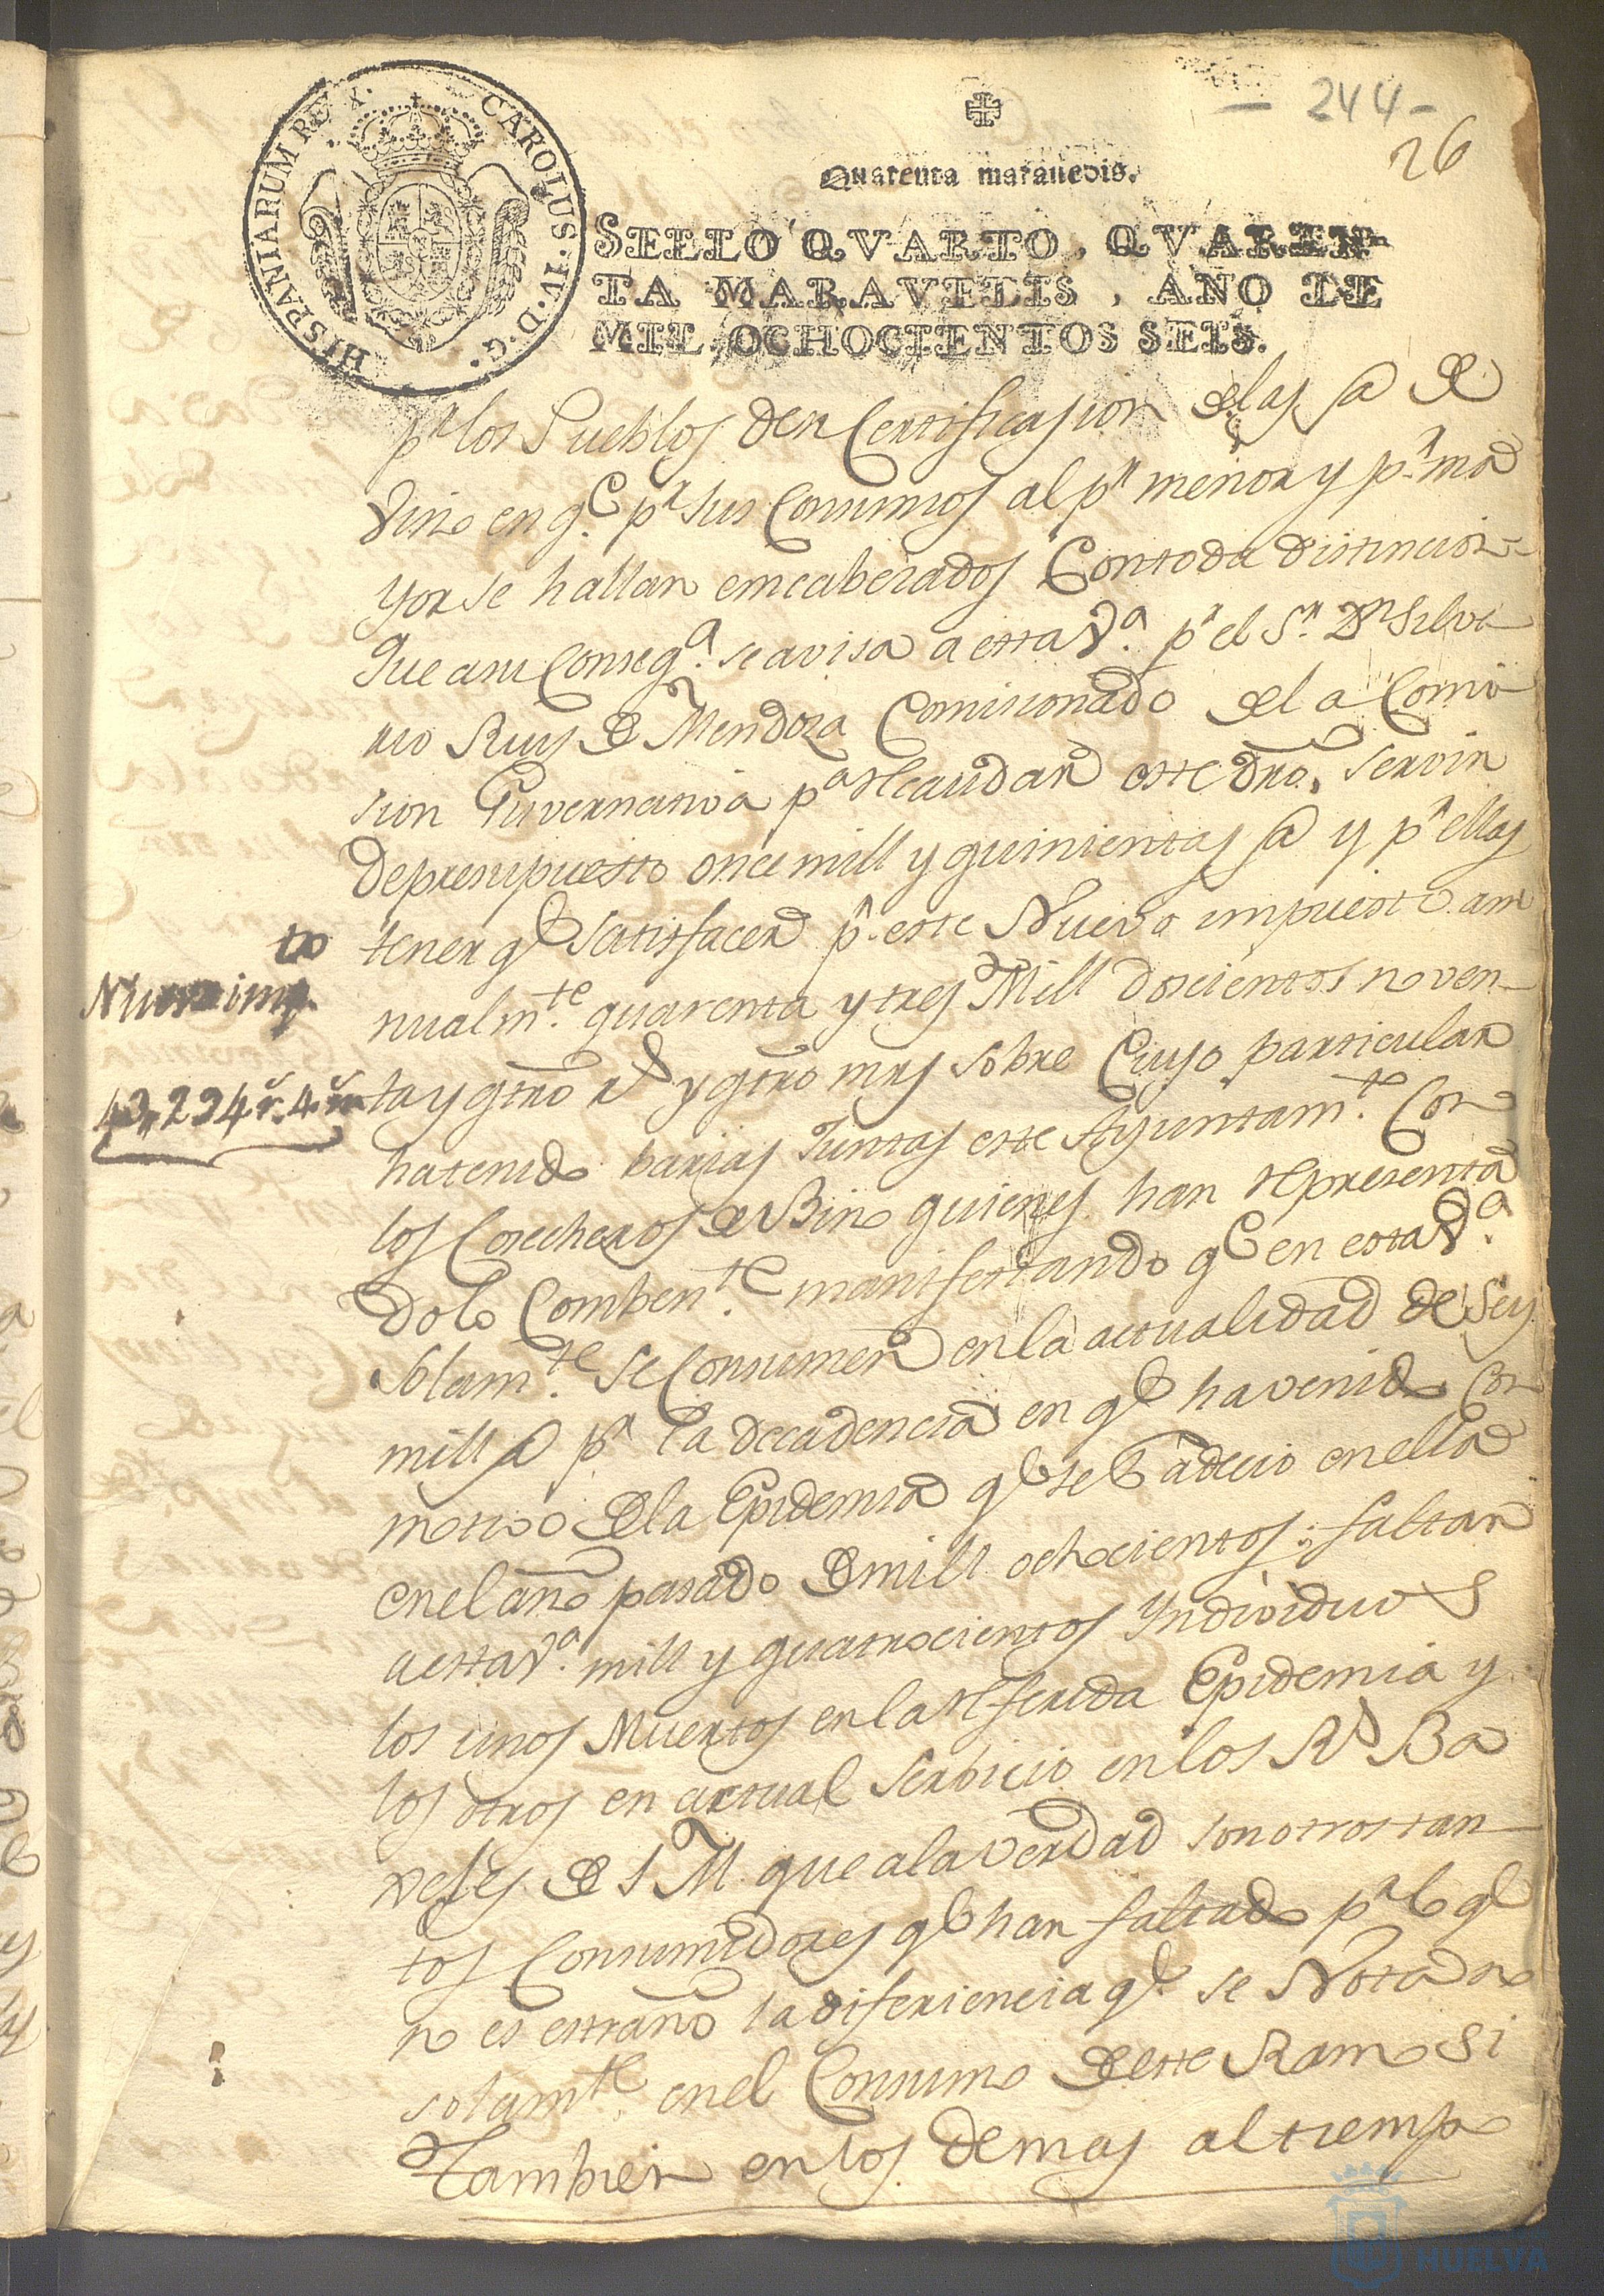 - 244 -
26
HISPANIARUM REX. CAROLUS·IV·D·G·
Quarenta maravedis.
SELLO QVARTO, QVAREN-
TA MARAVEDIS, AÑO DE
MIL OCHOCIENTOS SEIS.
pr los Pueblos den Certificasion delas @ de
vino en qe pr sus Consumos al pr menor y pr ma
yor se hallan emcabezados Contoda distincion
Que asu Conseqa. se avisa a esta Va. pr el Sr. Dn Silve
rio Ruis de Mendoza Comisionado de la Comi
sion Guvernativa pa Recaudar este dro, servir
de presupuesto once mill y quinientas @ y pr ellas
tener qe satisfacer pr este Nuevo impuesto an
nualmte. quarenta y tres Mill doscientos noven-
ta y qtro rs y qtro mrs sobre Cuyo particular
ha tenido barias Juntas este Ayuntamto. Con
los Cosecheros de Bino quienes han Representa
do lo Combente. manifestando qe en esta Va.
solamte. se Consumen en la actualidad de Seis
mill @ pr la decadencia en qe ha venido Con
motivo de la Epidemia qe se Padecio en ella
en el año pasado de mill ochocientos; faltan
a esta Va. mill y quatrocientos Yndividuos
los unos Muertos en la Referida Epidemia y
los otros en actual Serbicio en los Rs Ba
xeles de S M. que a la verdad son otros tan
tos Consumidores qe han faltado pr lo qe
no es estraño la diferiencia qe se Nota no
solamte. en el Consumo de este Ramo Si
Tambien en los demas al tiempo
to
Nuevo imp.
43,,294 rs. 4 ms
HUELVA